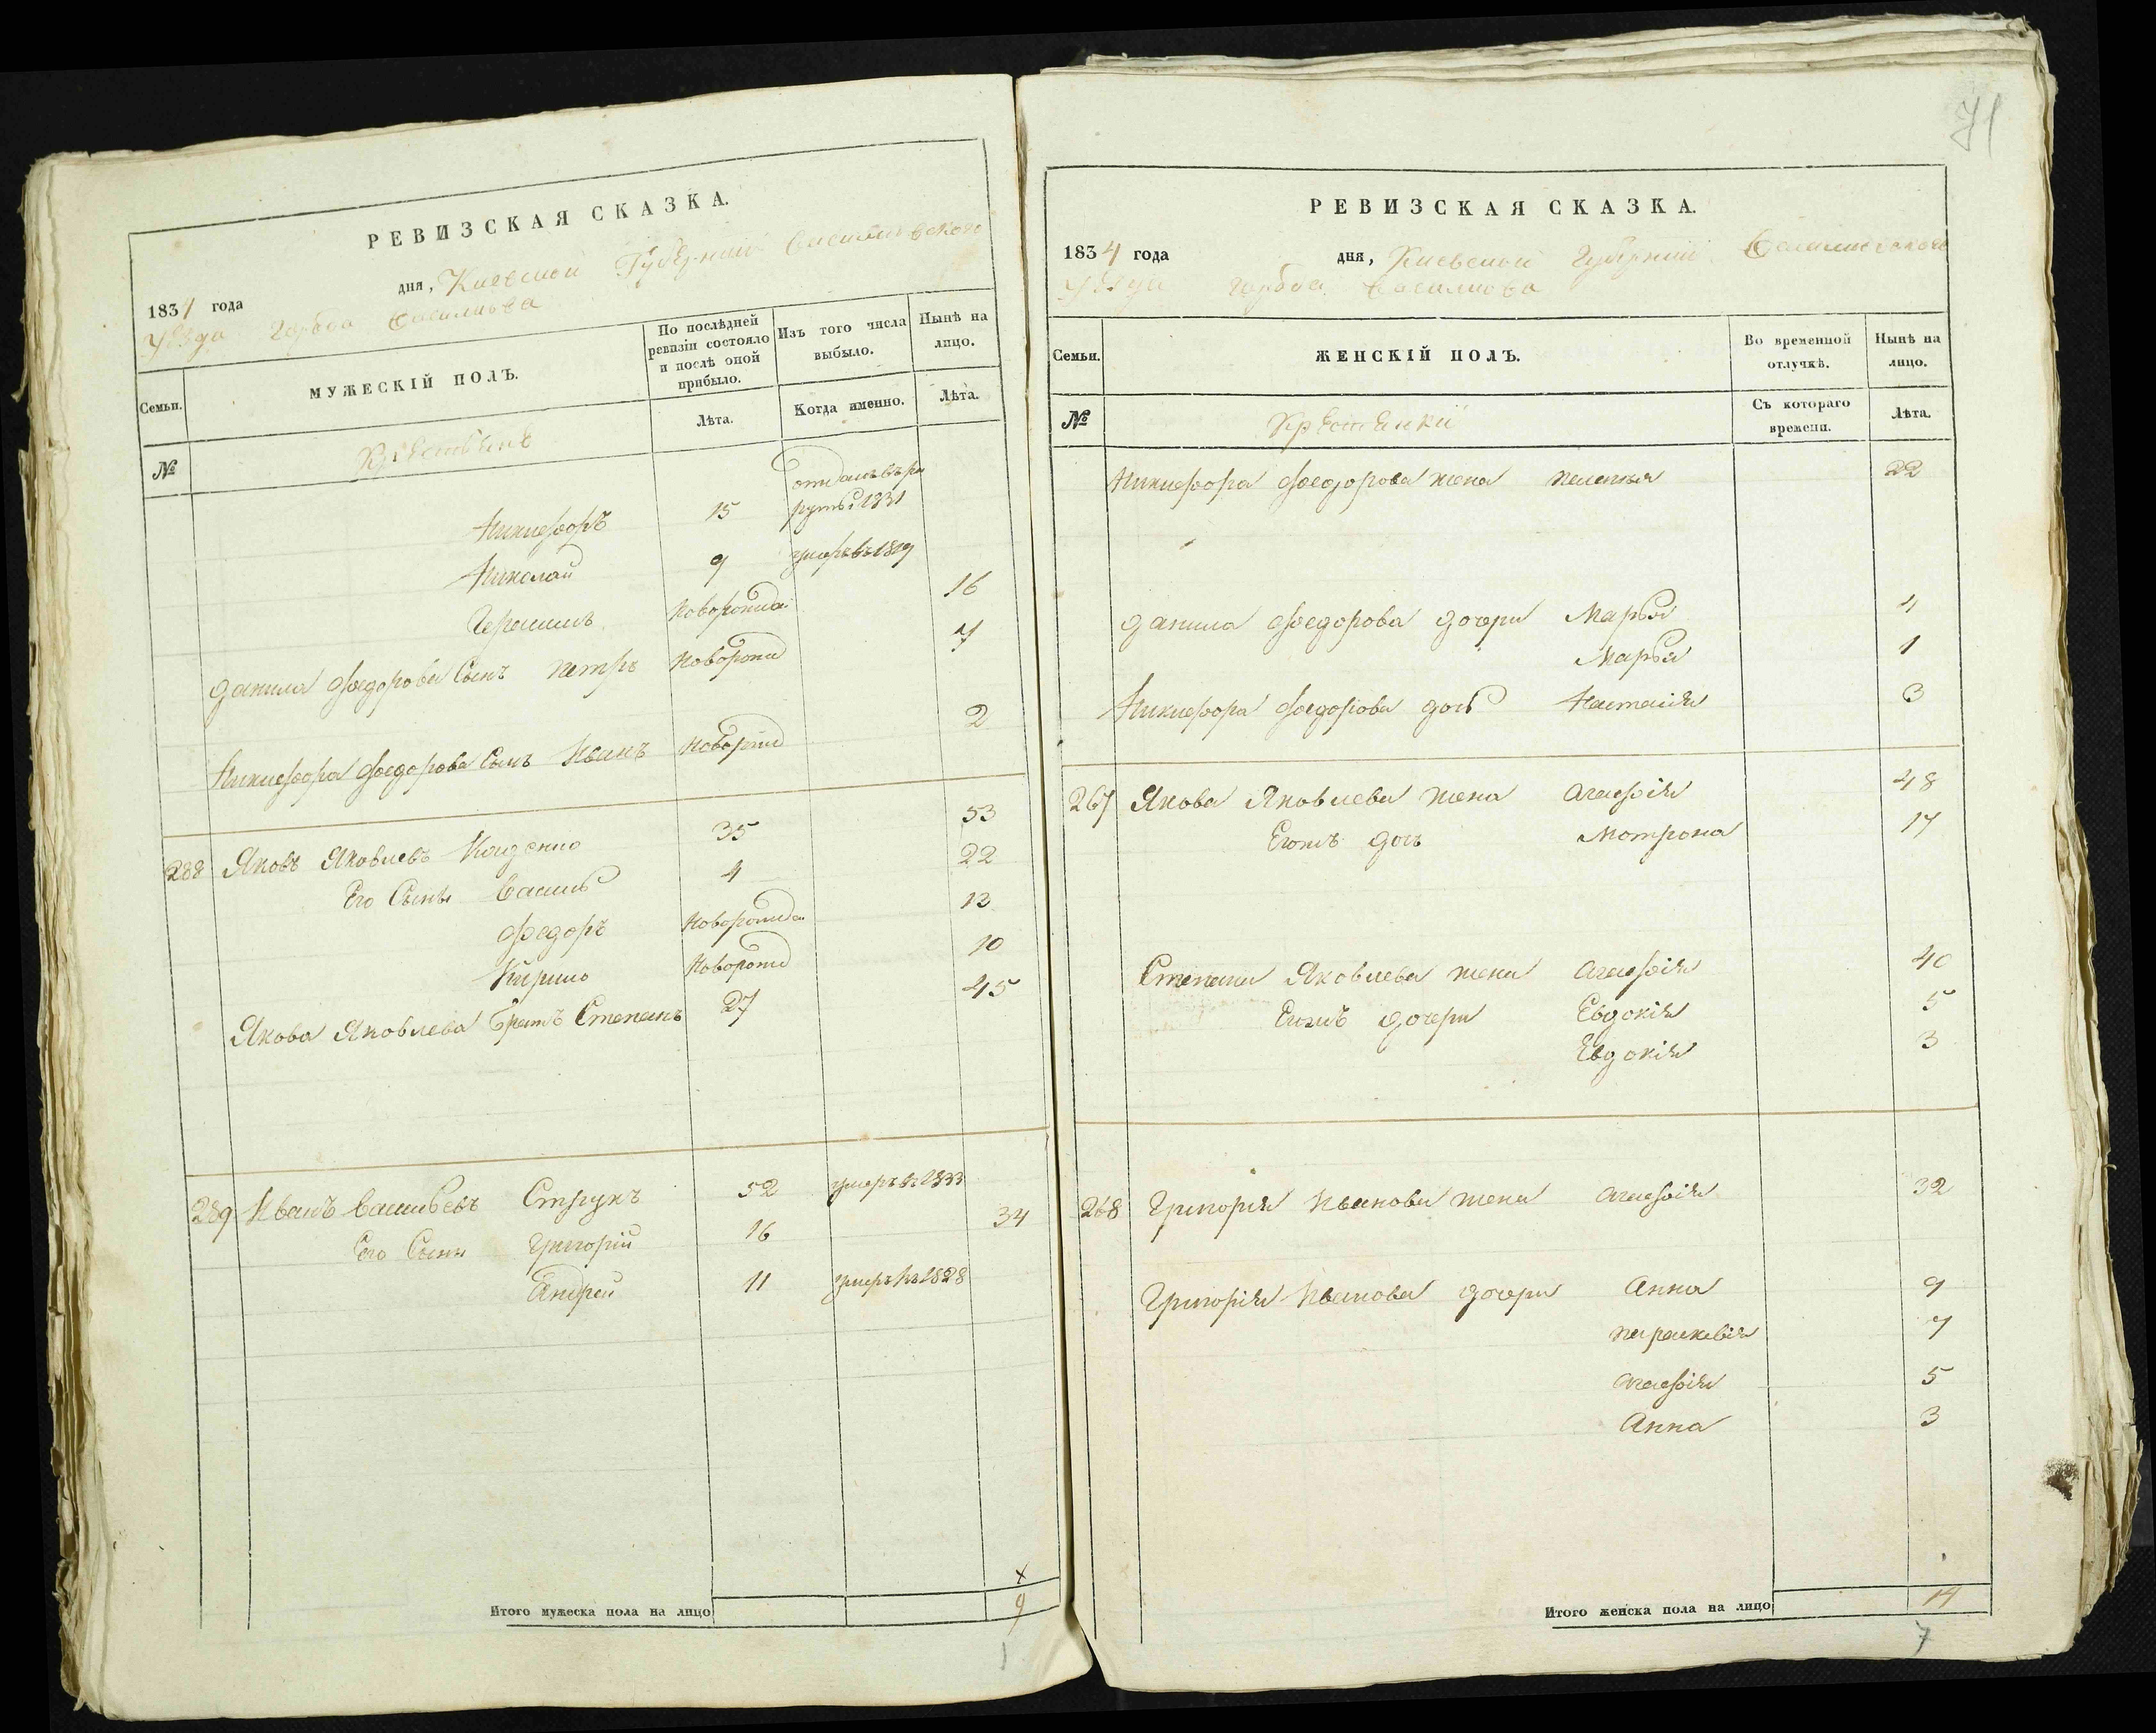 РЕВИЗСКАЯ СКАЗКА.
1834 года дня, Киевской Губернии Васильковского
уѣзда города Василькова
Семьи.
МУЖЕСКІЙ ПОЛЪ.
По послѣдней ревизіи состояло и послѣ оной прибыло.
Изъ того числа выбыло.
Нынѣ на лицо.
Лѣта.
Когда именно.
Лѣта.
№
Никифоръ 15 отданъ въ ре
круты 1831
Николай 9 умеръ въ 1819
Герасимъ Новорожд 16
Данила Федорова Сынъ Петръ Новорожд 7
Никифора Федорова Сынъ Иванъ Новорожд 2
288 Яковъ Яковлевъ 35 53
Его Сыны Василь 4 22
Федоръ Новорожд 13
Кирило Новорожд 10
Якова Яковлева Братъ Степанъ 27 45
289 Иванъ Васильевъ Струкъ 52 умеръ въ 1833
Его Сыны Григорій 16 34
Андрей 11 умеръ въ 1828
Итого мужеска пола на лицо 9
71
РЕВИЗСКАЯ СКАЗКА.
1834 года дня, Киевской Губерніи Васильковскаго
уѣзда города Василькова
Семьи.
ЖЕНСКІЙ ПОЛЪ.
Во временной отлучкѣ.
Нынѣ на лицо.
№
Съ котораго времени.
Лѣта.
Никифора Федорова жена Пелагея 22
Данила Федорова дочери Марья 4
Марья 1
Никифора Федорова дочь Настасія 3
267 Якова Яковлева жена Агафія 48
Егожъ дочь Мотрона 17
Степана Яковлева жена Агафія 40
Егожъ дочери Евдокія 5
Евдокія 3
268 Григорія Иванова жена Агафія 32
Григорія Иванова дочери Анна 9
Параскевія 7
Агафія 5
Анна 3
Итого женска пола на лицо 14
7